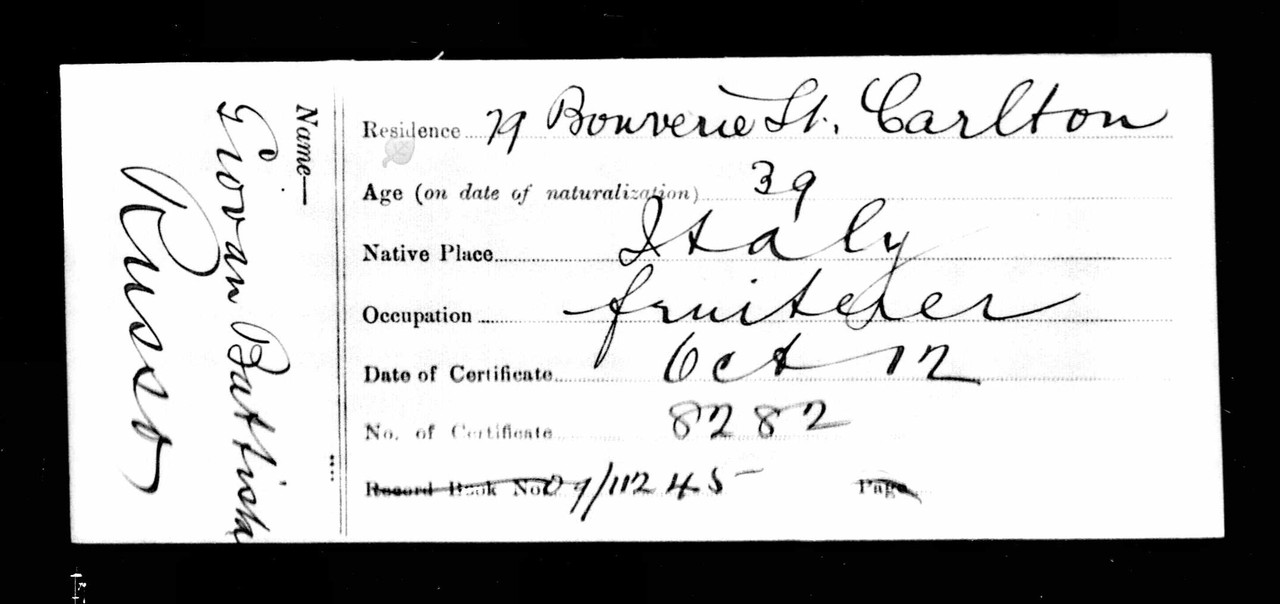 Name—
Giovan Battista
Russo
Residence 79 Bouverie St. Carlton
Age (on date of naturalization) 39
Native Place Italy
Occupation fruiterer
Date of Certificate Oct 12
No. of Certificate 8282
Record Book No. 09/11245
Page